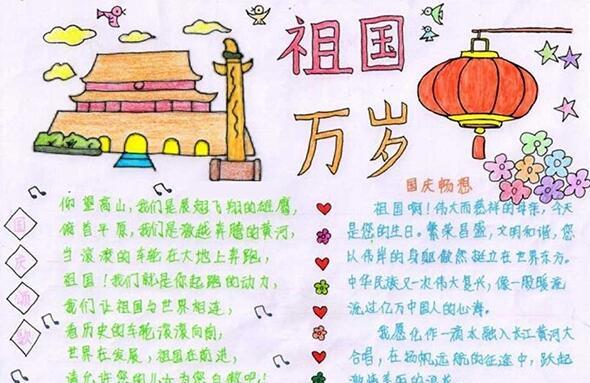 祖国
万岁
国庆颂歌
仰望高山,我们是展翅飞翔的雄鹰,
俯首平原,我们是激越奔腾的黄河,
当滚滚的车轮在大地上奔跑,
祖国!我们就是你起跑的动力,
我们让祖国与世界相连,
看历史的车轮滚滚向前,
世界在发展,祖国在前进,
请允许您的儿女为您自豪吧!
国庆畅想
祖国啊!伟大而慈祥的母亲,今天
是您的生日。繁荣昌盛,文明和谐,您
以伟岸的身躯傲然挺立在世界东方。
中华民族又一次伟大复兴,像一股暖流
流过亿万中国人的心海。
我愿化作一滴水融入长江黄河大
合唱,在扬帆远航的征途中,跃起